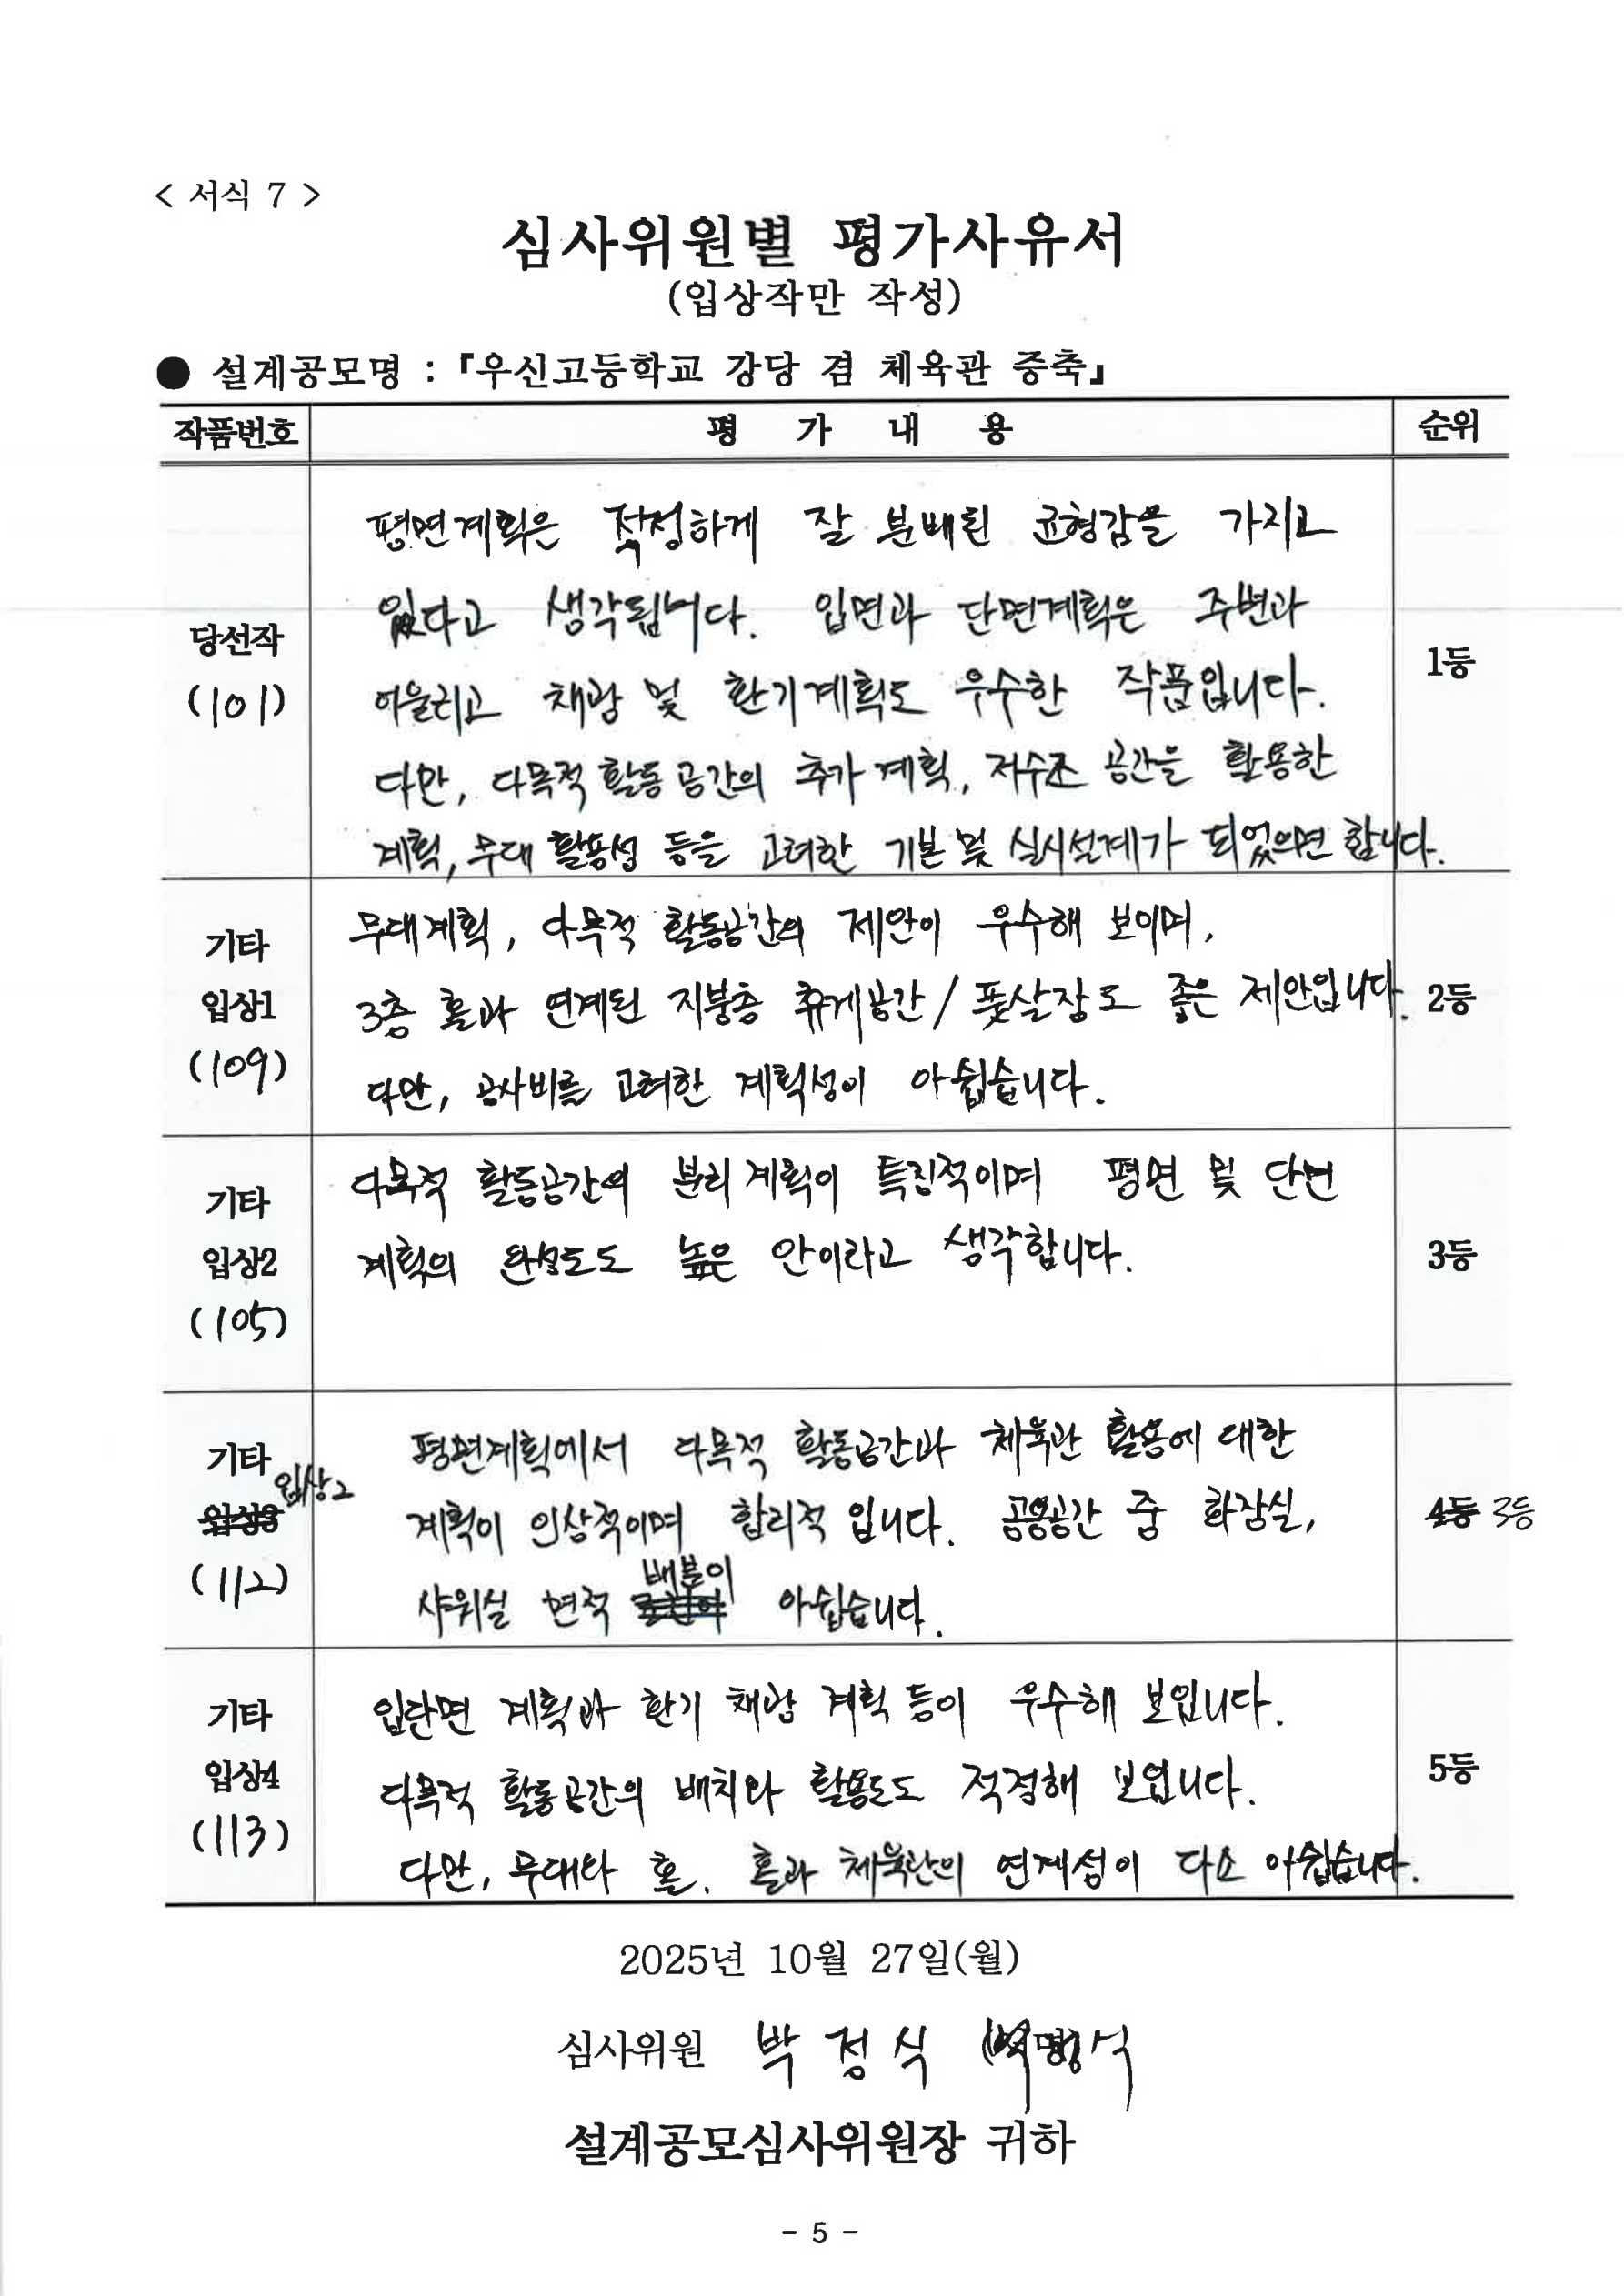 < 서식 7 >
심사위원별 평가사유서
(입상작만 작성)
● 설계공모명 : 『우신고등학교 강당 겸 체육관 증축』
작품번호 평 가 내 용 순위
당선작
(101)
평면계획은 적정하게 잘 분배된 균형감을 가지고
있다고 생각됩니다. 입면과 단면계획은 주변과
어울리고 채광 및 환기계획도 우수한 작품입니다.
다만, 다목적 활동공간의 추가 계획, 저수조 공간을 활용한
계획, 무대 활용성 등을 고려한 기본 및 실시설계가 되었으면 합니다.
1등
기타
입상1
(109)
무대계획, 다목적 활동공간의 제안이 우수해 보이며,
3층 홀과 연계된 지붕층 휴게공간/풋살장도 좋은 제안입니다.
다만, 공사비를 고려한 계획성이 아쉽습니다.
2등
기타
입상2
(105)
다목적 활동공간의 분리계획이 특징적이며 평면 및 단면
계획의 완성도도 높은 안이라고 생각합니다.
3등
기타
입상3 입상2
(112)
평면계획에서 다목적 활동공간과 체육관 활용에 대한
계획이 인상적이며 합리적 입니다. 공용공간 중 화장실,
샤워실 면적 배분이 아쉽습니다.
4등 3등
기타
입상4
(113)
입단면 계획과 환기 채광 계획 등이 우수해 보입니다.
다목적 활동공간의 배치와 활용도도 적정해 보입니다.
다만, 무대와 홀, 홀과 체육관의 연계성이 다소 아쉽습니다.
5등
2025년 10월 27일(월)
심사위원 박정식
설계공모심사위원장 귀하
- 5 -